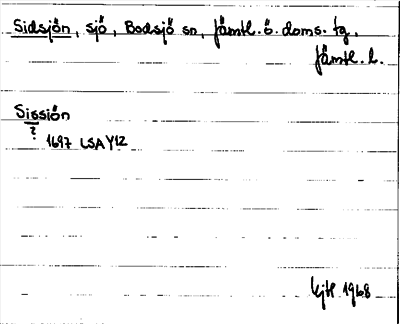 Sidsjön, sjö, Bodsjö sn, Jämtl. ö. doms. tg.
Jämtl. l.
Sissiön
?
1697 LSA Y12
1968